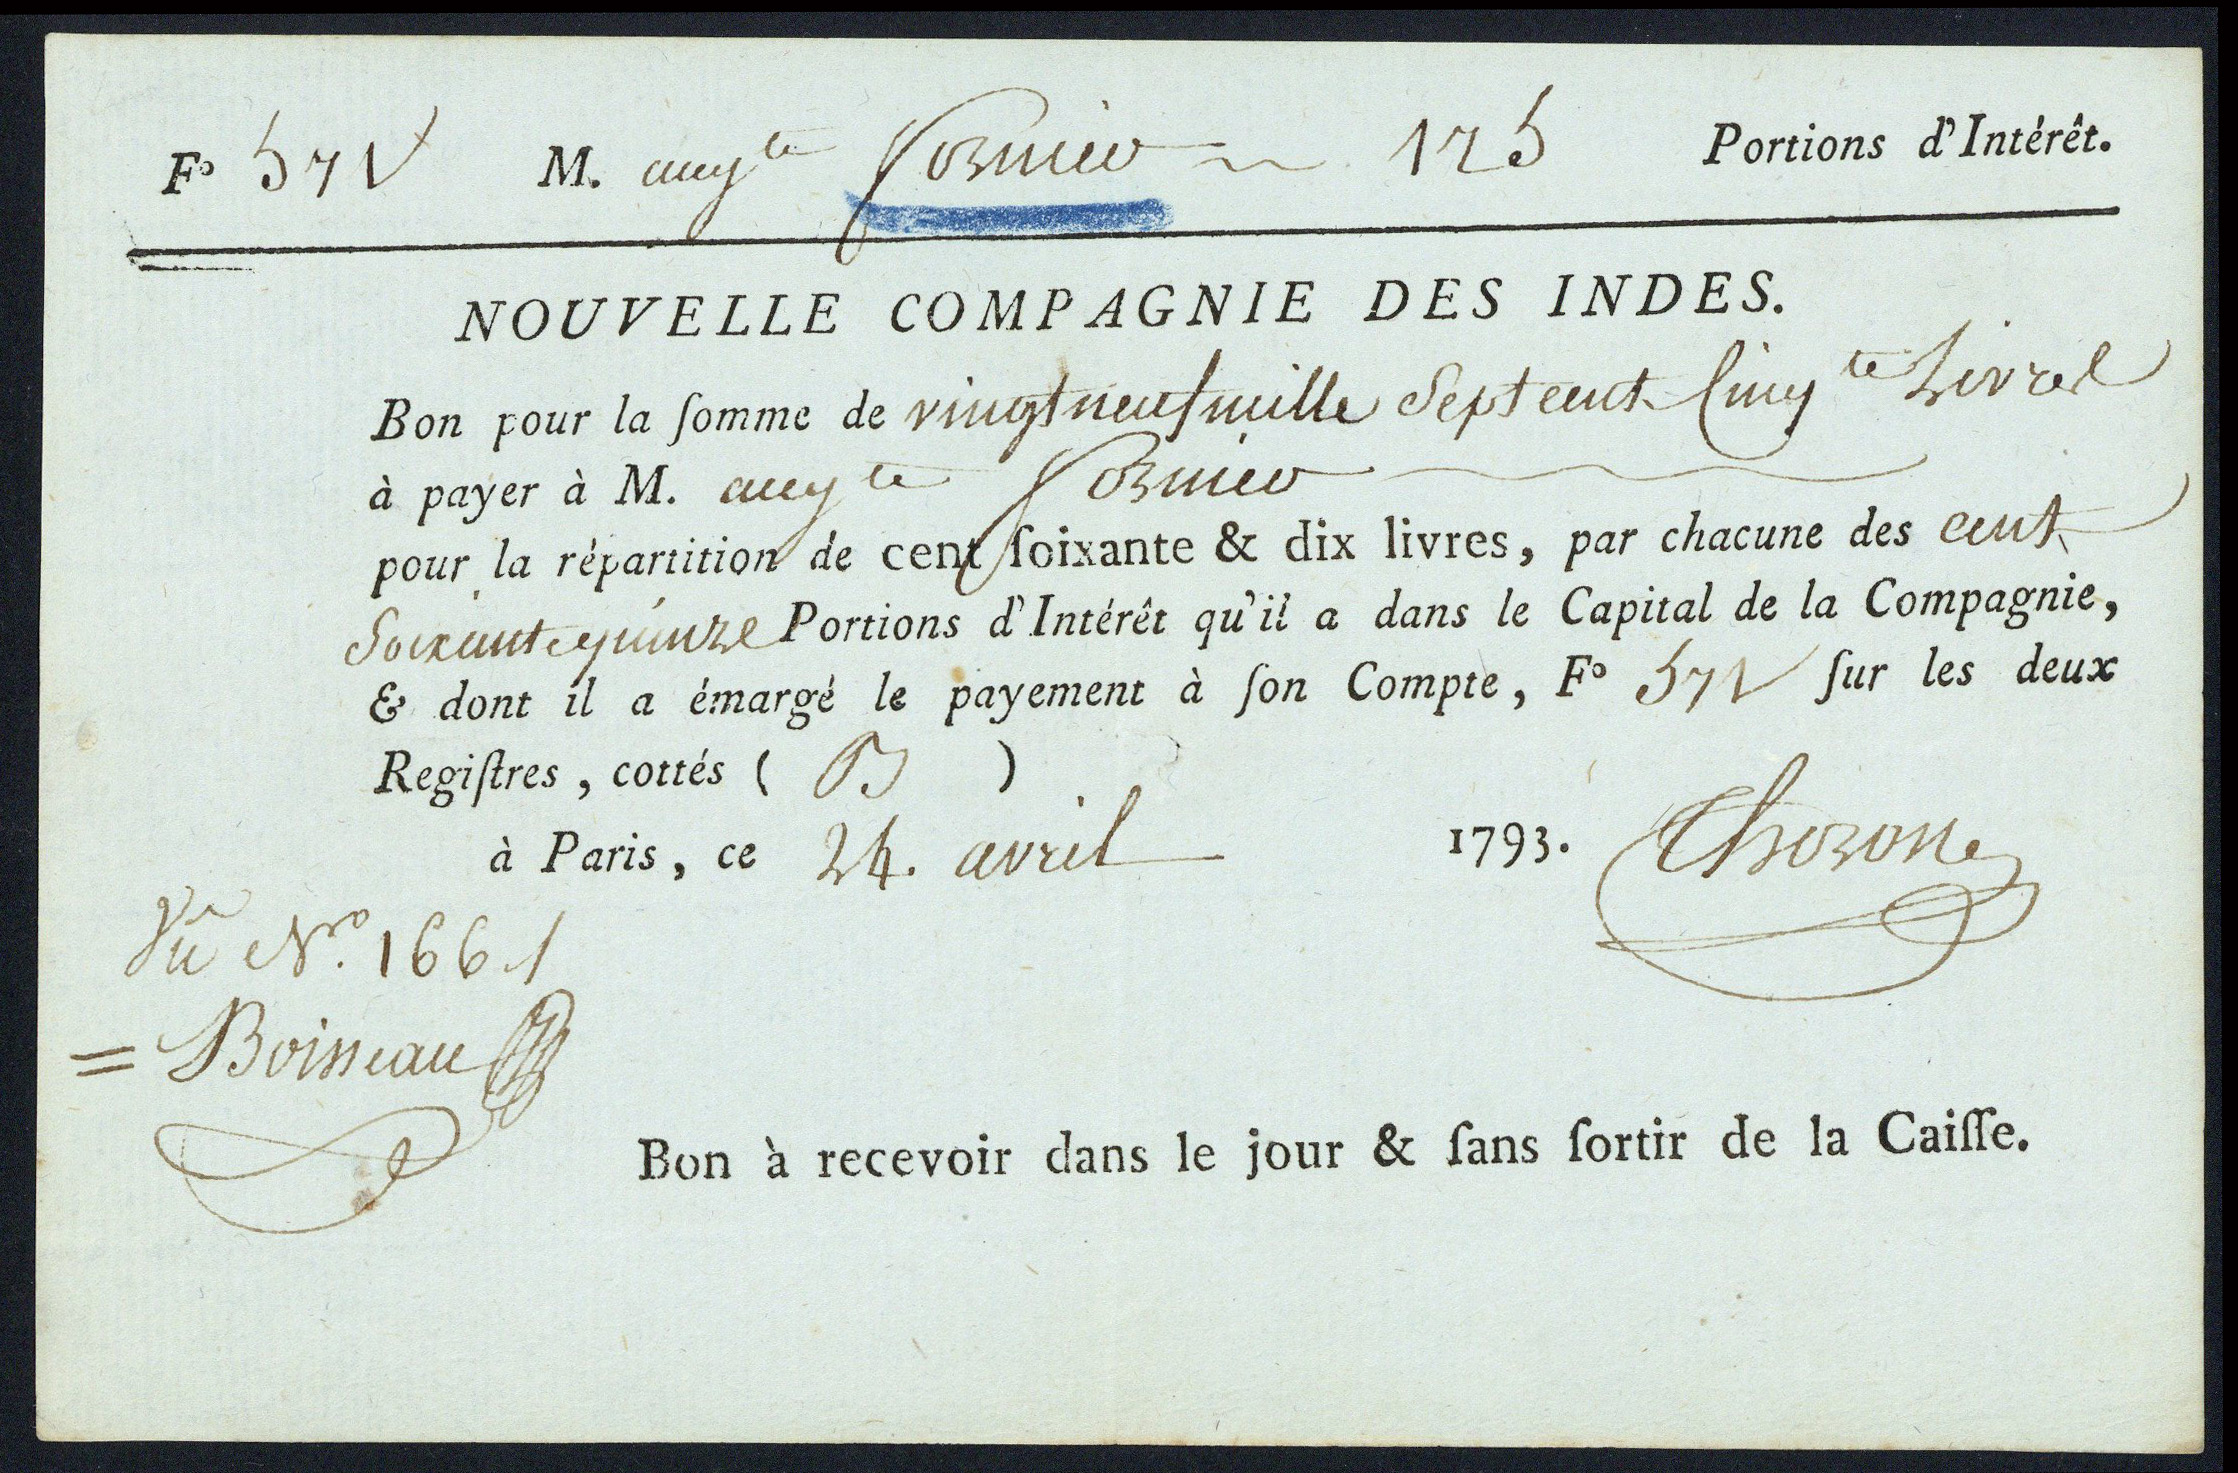 Fo 571 M. augte fornier 175 Portions d'Intérêt.
NOUVELLE COMPAGNIE DES INDES.
Bon pour la ſomme de vingt neuf mille Sept cent Cinqte Livres
à payer à M. augte fornier
pour la répartition de cent ſoixante & dix livres, par chacune des cent
Soixante quinze Portions d'Intérêt qu'il a dans le Capital de la Compagnie,
& dont il a émargé le payement à ſon Compte, Fo 571 ſur les deux
Regiſtres, cottés ( B )
à Paris, ce 24. avril 1793.
Vu No. 1661
= Boisseau
Bon à recevoir dans le jour & ſans ſortir de la Caiſſe.